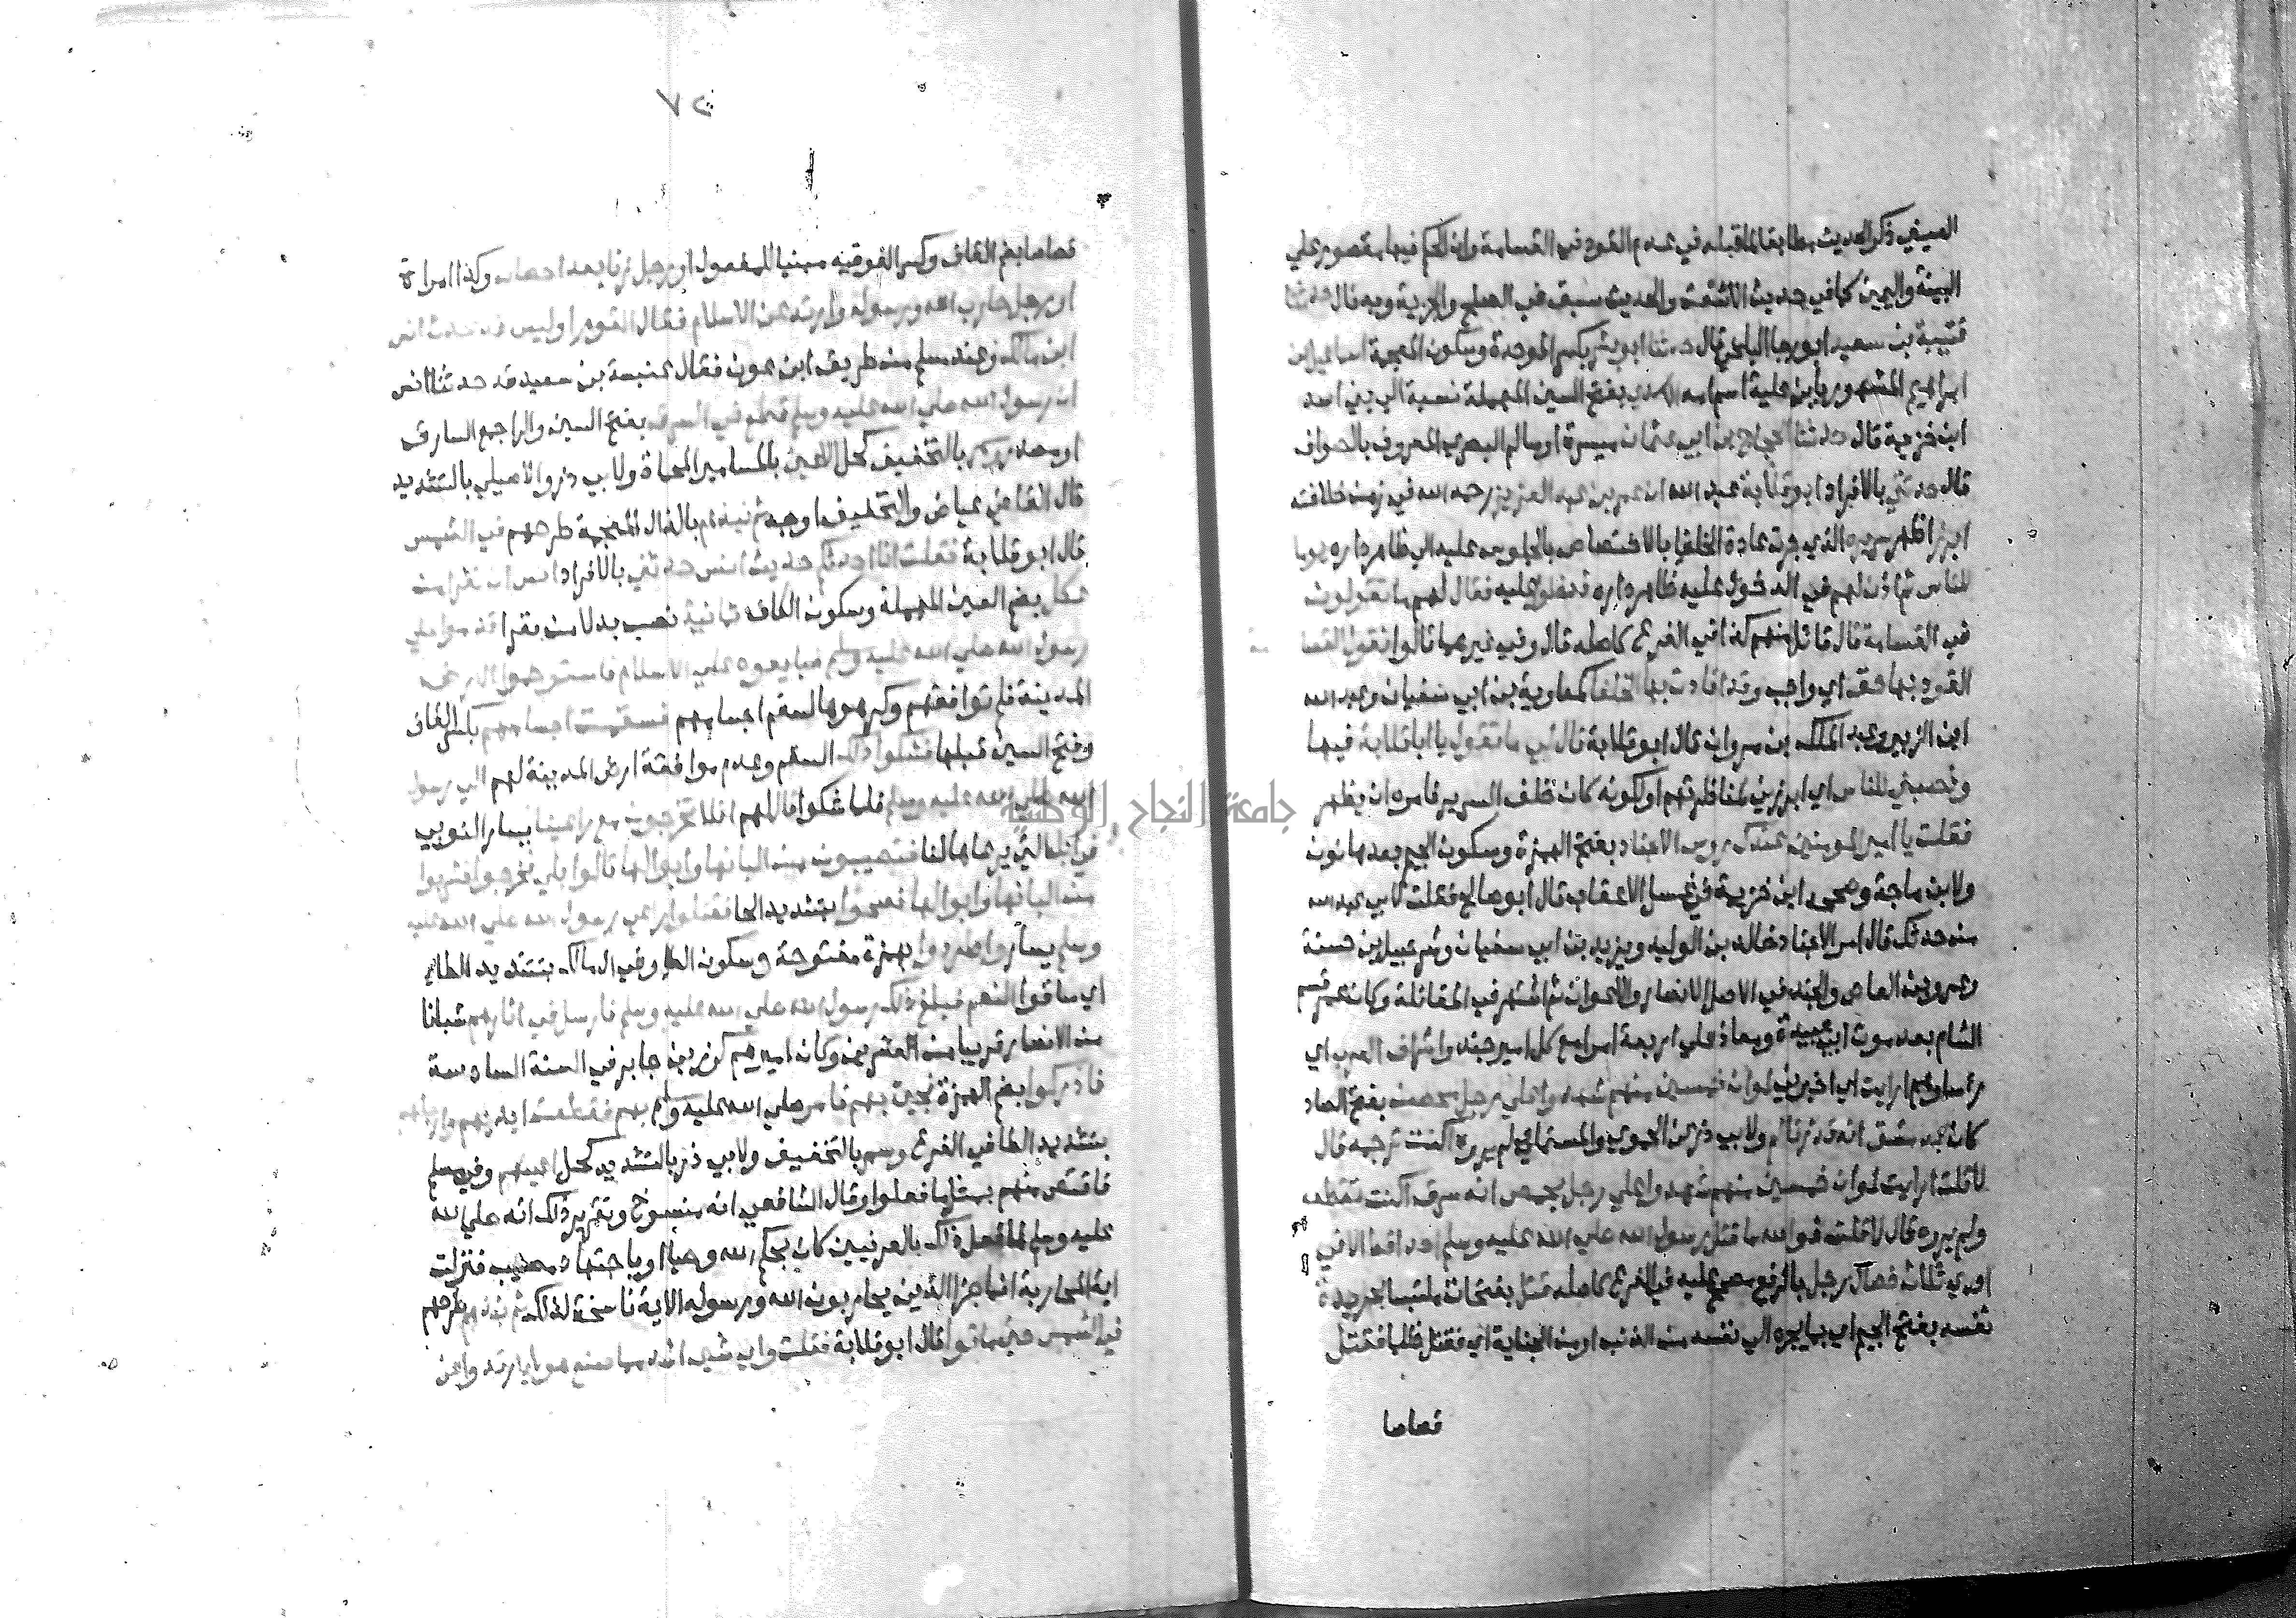 العيني ذكر الحديث مطابقا لما قبله في عدم القود في القسامة وان الحكم فيها مقصور على
البينة واليمين كما في حديث الاشعث والحديث سبق في الصلح والجزية وبه قال حدثنا
قتيبة بن سعيد ابو رجا البلخي قال حدثنا ابو بشر بكسر الموحدة وسكون المعجمة اسماعيل بن
ابراهيم المشهور بابن علية اسم امه الاسدي بفتح السين المهملة نسبة الي بني اسد
ابن خزيمة قال حدثنا الحجاج بن ابي عثمان ميسرة او سالم البصري المعروف بالصواف
قال حدثني بالافراد ابو قلابة عبد الله ان عمر بن عبد العزيز رحمه الله في زمن خلافته
ابرز اظهر سريره الذي جرت عادة الخلفا بالاختصاص بالجلوس عليه الي ظاهر داره يوما
للناس ثم اذن لهم في الدخول عليه ظاهر داره فدخلوا عليه فقال لهم ما تقولون
في القسامة قال قائل منهم كذا في الفرع كاصله قال وفي غيرهما قالوا نقول القسامة
القود بها حق اي واجب وقد اقادت بها الخلفا كمعاوية بن ابي سفيان وعبد الله
ابن الزبير وعبد الملك بن مروان قال ابو قلابة قال لي ما تقول يا ابا قلابة فيها
ونصبني للناس اي ابرزني لمناظرتهم او لكونه كان خلف السرير فامره ان يظهر
فقلت يا امير المومنين عندك روس الاجناد بفتح الهمزة وسكون الجيم بعدها نون
ولابن ماجة وصححه ابن خزيمة في غسل الاعقاب قال ابو صالح فقلت لابي عبد الله
من حدثك قال امرا الاجناد خالد بن الوليد ويزيد بن ابي سفيان وشرحبيل بن حسنة
وعمرو بن العاص والجند في الاصل الانصار والاعوان ثم اشتهر في المقاتلة وكان عمر قسم
الشام بعد موت ابي عبيدة ومعاذ علي اربعة امرا مع كل امير جند واشراف العرب اي
رأساوهم ارايت اي اخبرني لو ان خمسين منهم شهدوا علي رجل محصن بفتح الصاد
كان بدمشق انه قد زنا لم ولابي ذر عن الحموي والمستملي لم يروه اكنت ترجمه قال
لا قلت ارايت لو ان خمسين منهم شهدوا علي رجل بحمص انه سرق اكنت تقطعه
ولم يروه قال لا قلت فوالله ما قتل رسول الله صلي الله عليه وسلم احد اقط الا في
احدي ثلاث خصال رجل بالرفع مصحح عليه في الفرع كاصله قتل بفتحات ملتبسا بجريرة
نفسه بفتح الجيم اي بما يجره الي نفسه من الذنب او من الجناية اي فقتل ظلما فقتل
قصاصا
٧٢
قصاصا بضم القاف وكسر الفوقيه مبنيا للمفعول او رجل زنا بعد احصان وكذا امراة
او رجل حارب الله ورسوله وارتد عن الاسلام فقال القوم اوليس قد حدث انس
ابن مالك وعند مسلم من طريق ابن عون فقال عنبسة بن سعيد قد حدثنا انس
ان رسول الله صلي الله عليه وسلم قطع في السرق بفتح السين والرا جمع السارق
او مصدر وسمر بالتخفيف كحل الاعين بالمسامير المحماة ولابي ذر والاصيلي بالتشديد
قال القاضي عياض والتخفيف اوجه ثم نبذهم بالذال المعجمة طرحهم في الشمس
قال ابو قلابة فقلت انا احدثكم حديث انس حدثني بالافراد انس ان نفرا من
عكل بضم العين المهملة وسكون الكاف ثمانية نصب بدلا من نفرا قدموا علي
رسول الله صلي الله عليه وسلم فبايعوه علي الاسلام فاستوخموا الارض
المدينة فلم توافقهم وكرهوها لسقم اجسامهم فسقمت اجسامهم بكسر القاف
وفتح السين قبلها فشكوا ذلك السقم وعدم موافقة ارض المدينة لهم الي رسول
الله صلي الله عليه وسلم فلما شكوا قال لهم افلا تخرجون مع راعينا يسار النوبي
في ابله التي يرعاها لنا فتصيبون من البانها وابوالها قالوا بلي فخرجوا فشربوا
من البانها وابوالها فصحوا بتشديد الحا فقتلوا راعي رسول الله صلي الله عليه
وسلم يسار واطردوا بهمزة مفتوحة وسكون الطا وفي ال بتشديد الطاء
اي ساقوا النعم فبلغ ذلك رسول الله صلي الله عليه وسلم فارسل في اثارهم شبانا
من الانصار قريبا من العشرين وكان اميرهم كرز بن جابر في السنة السادسة
فادركوا بضم الهمزة فجيئ بهم فامر صلي الله عليه وسلم بهم فقطعت ايديهم وارجلهم
بتشديد الطا في الفرع وسمر بالتخفيف ولابي ذر بالتشديد كحل اعينهم وفي مسلم
فاقتص منهم بمثل ما فعلوا وقال الشافعي انه منسوخ وتقرير ذلك انه صلي الله
عليه وسلم لما فعل ذلك بالعرنيين كان بحكم الله وحيا او باجتهاد مصيب فنزلت
اية المحاربة انما جزا الذين يحاربون الله ورسوله الاية ناسخة لذلك ثم نبذهم طرحهم
في الشمس حتي ماتوا قال ابو قلابة فقلت واي شي اشد مما صنع هولا ارتدوا عن
جامعة النجاح الوطنية